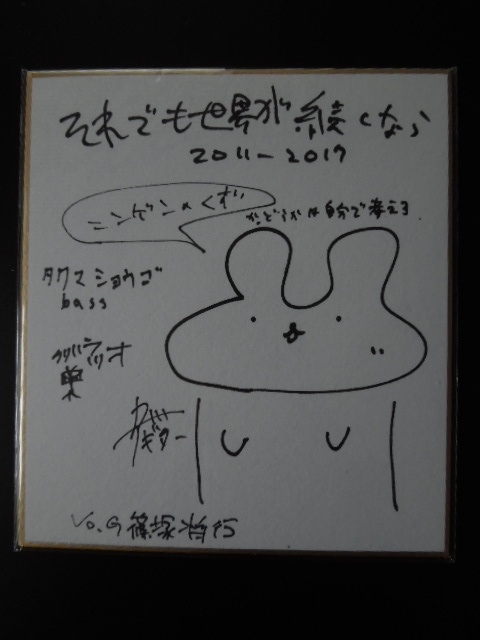 それでも世界が続くなら
2011-2017
ニンゲンのくず
かどうかは自分で考えろ
タクマ ショウゴ
bass
ギター
Vo.G 篠塚将行